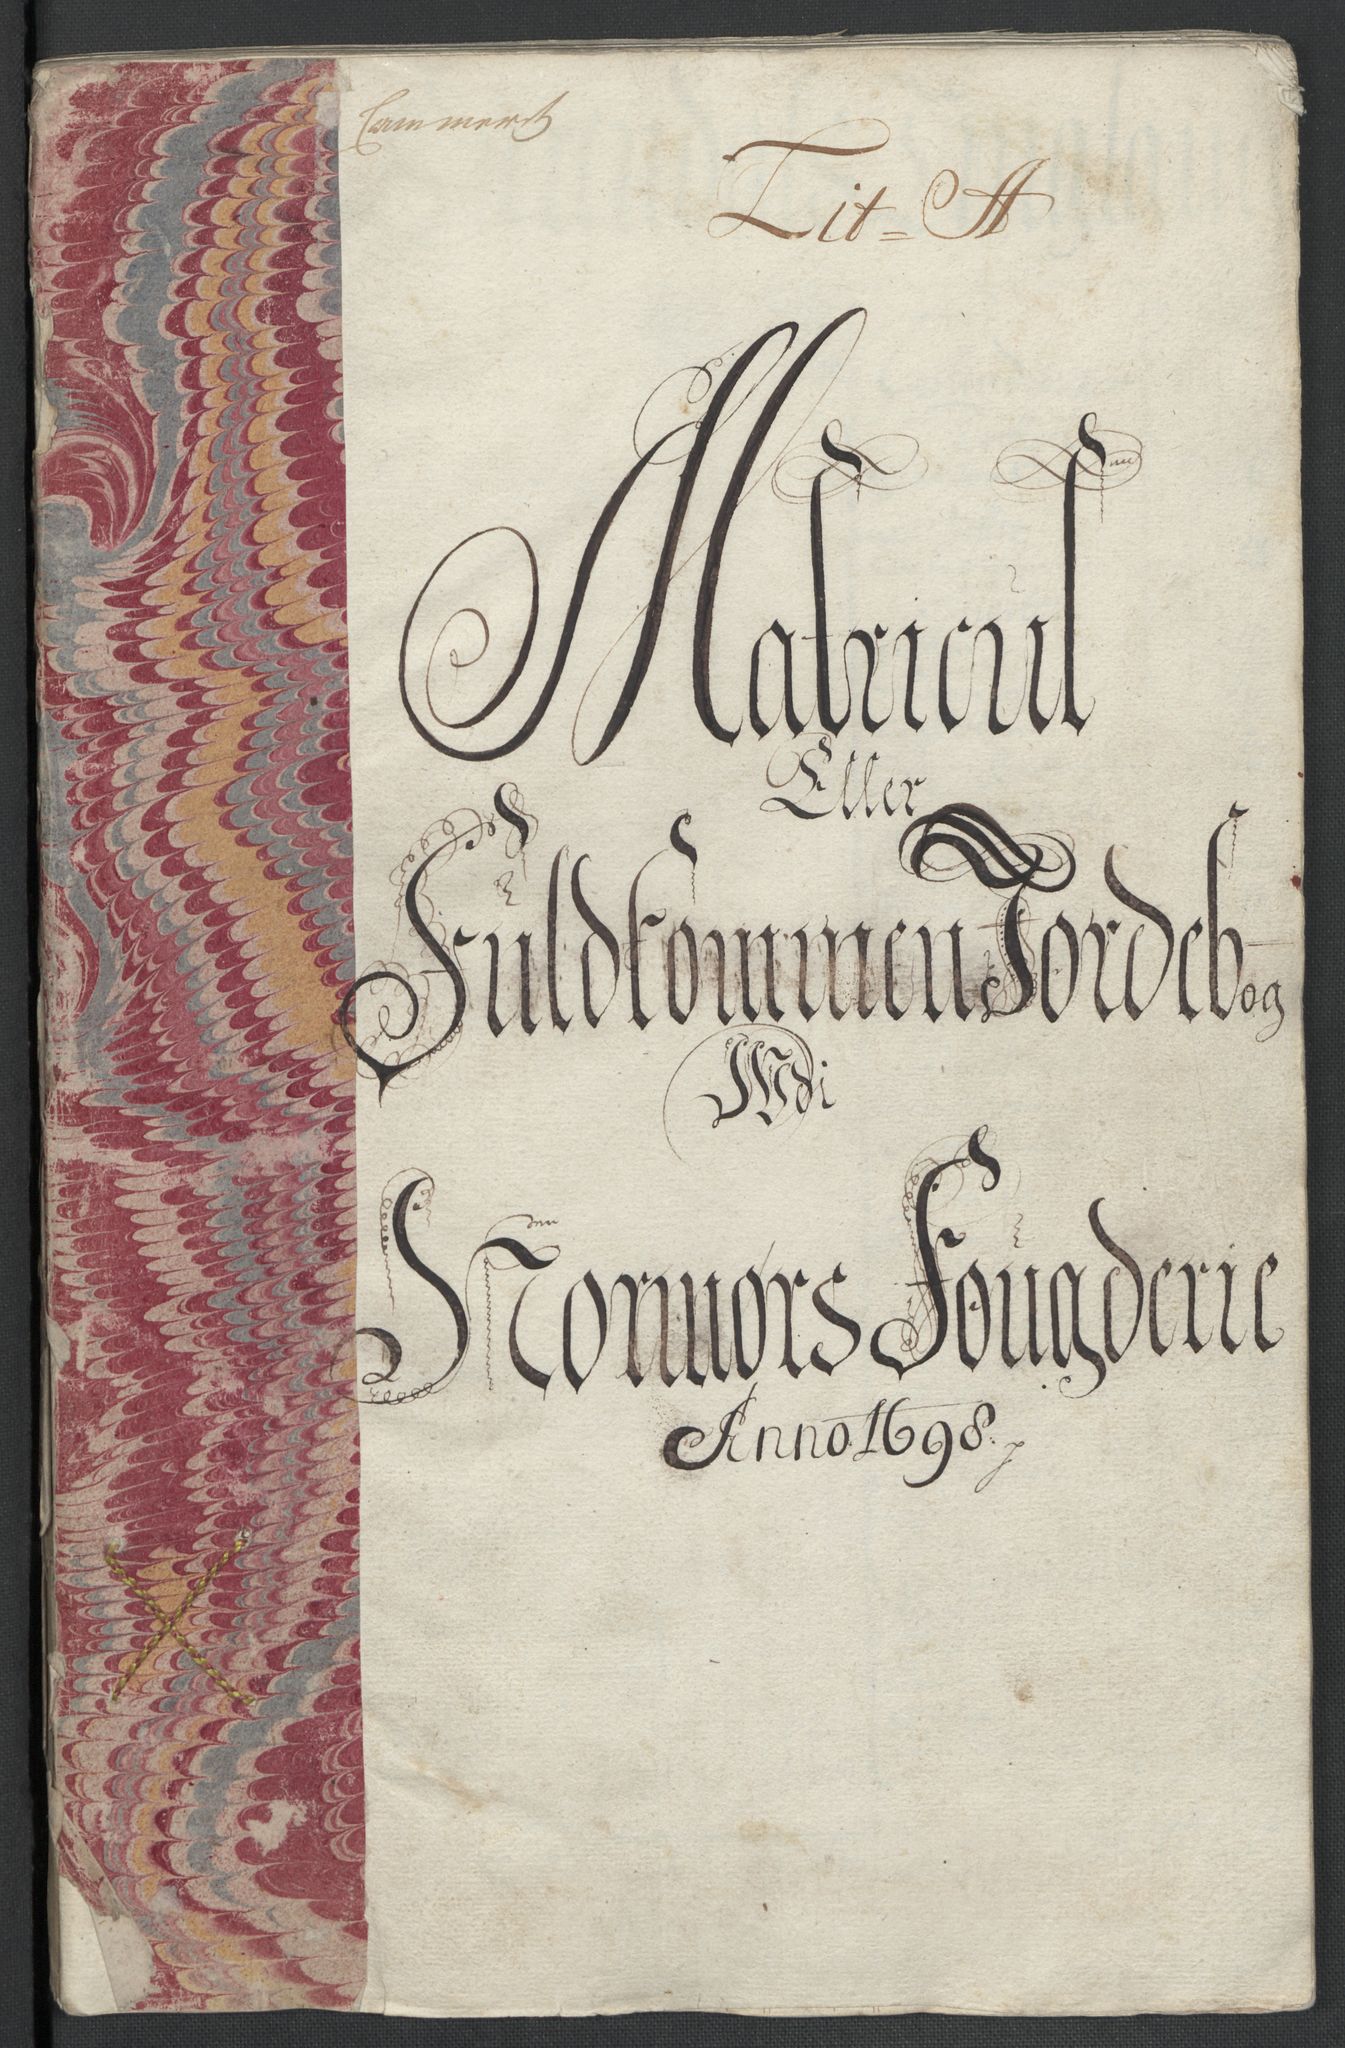 Cammeret
Lit = A
Matricul
Eller
Fuldkommen Jordebog
Udi
Normørs Fougderie
Anno 1698